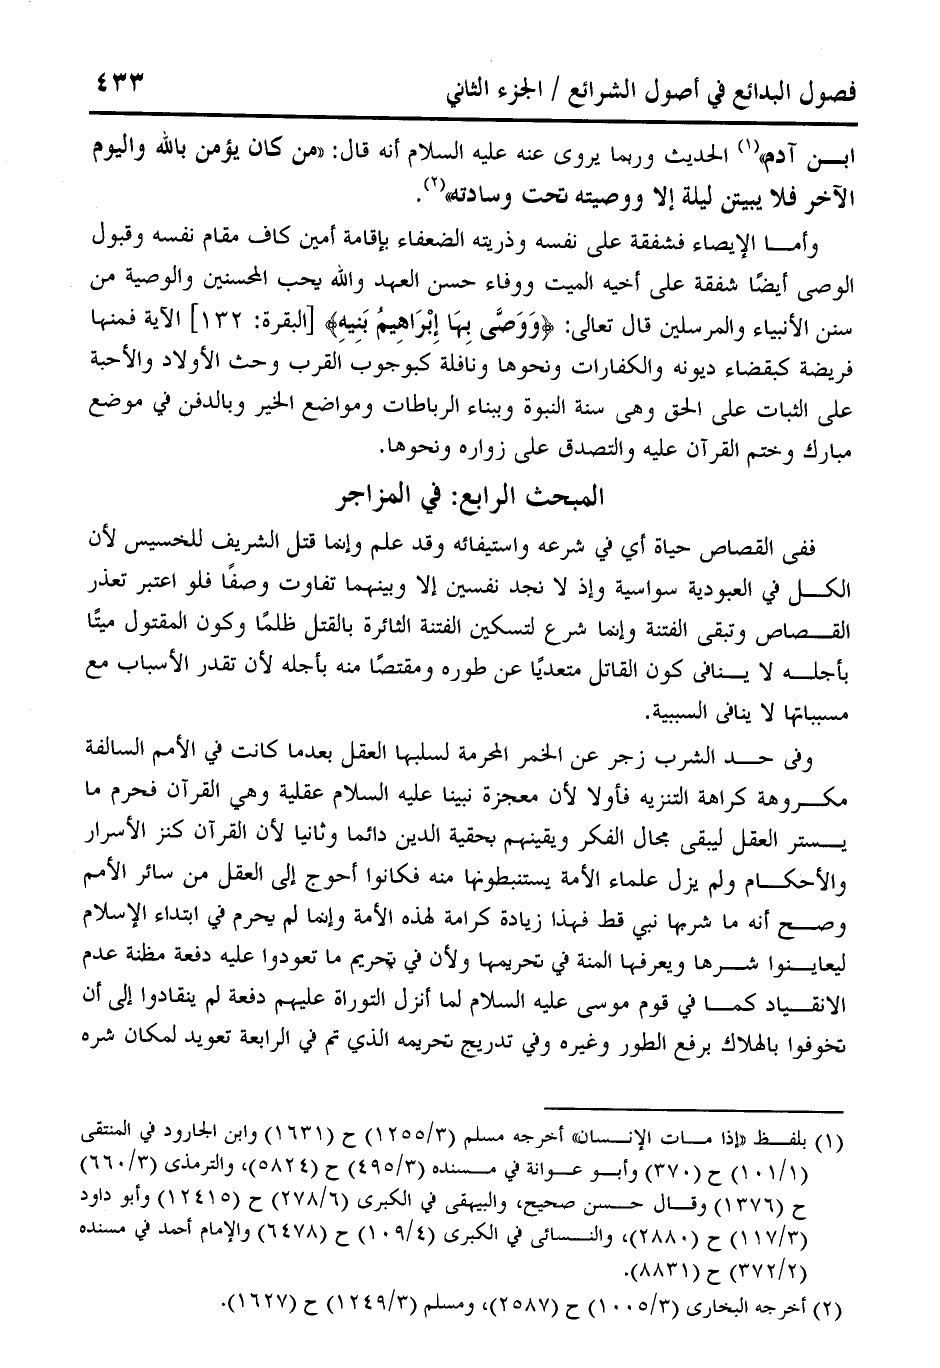 فصول البدائع في أصول الشرائع / الجزء الثاني ٤٣٣
ابـــن آدم»(١) الحديث وربما يروى عنه عليه السلام أنه قال: «من كان يؤمن بالله واليوم
الآخر فلا يبيتن ليلة إلا ووصيته تحت وسادته»(٢).
وأمـــا الإيصاء فشفقة على نفسه وذريته الضعفاء بإقامة أمين كاف مقام نفسه وقبول
الوصى أيضًا شفقة على أخيه الميت ووفاء حسن العهد والله يحب المحسنين والوصية من
سنن الأنبياء والمرسلين قال تعالى: ﴿وَوَصَّى بِهَا إِبْرَاهِيمُ بَنِيهِ﴾ [البقرة: ١٣٢] الآية فمنها
فريضة كبقضاء ديونه والكفارات ونحوها ونافلة كبوجوب القرب وحث الأولاد والأحبة
على الثبات على الحق وهى سنة النبوة وببناء الرباطات ومواضع الخير وبالدفن في موضع
مبارك وختم القرآن عليه والتصدق على زواره ونحوها.
المبحث الرابع: في المزاجر
ففى القصاص حياة أي في شرعه واستيفائه وقد علم وإنما قتل الشريف للخسيس لأن
الكـــل في العبودية سواسية وإذ لا نجد نفسين إلا وبينهما تفاوت وصفًا فلو اعتبر تعذر
القـــصاص وتبقى الفتنة وإنما شرع لتسكين الفتنة الثائرة بالقتل ظلمًا وكون المقتول ميتًا
بأجلـــه لا يـــنافى كون القاتل متعديًا عن طوره ومقتصًا منه بأجله لأن تقدر الأسباب مع
مسبباتها لا ينافى السببية.
وفى حـــد الشرب زجر عن الخمر المحرمة لسلبها العقل بعدما كانت في الأمم السالفة
مكـــروهة كراهة التنزيه فأولا لأن معجزة نبينا عليه السلام عقلية وهي القرآن فحرم ما
يـــستر العقل ليبقى مجال الفكر ويقينهم بحقية الدين دائما وثانيا لأن القرآن كنز الأسرار
والأحكـــام ولم يزل علماء الأمة يستنبطونها منه فكانوا أحوج إلى العقل من سائر الأمم
وصـــح أنه ما شربها نبي قط فهذا زيادة كرامة لهذه الأمة وإنما لم يحرم في ابتداء الإسلام
ليعايـــنوا شـــرها ويعرفها المنة في تحريمها ولأن في تحريم ما تعودوا عليه دفعة مظنة عدم
الانقـــياد كمـــا في قوم موسى عليه السلام لما أنزل التوراة عليهم دفعة لم ينقادوا إلى أن
تخوفوا بالهلاك برفع الطور وغيره وفي تدريج تحريمه الذي تم في الرابعة تعويد لمكان شره
(١) بلفـــظ «إذا مـــات الإنـــسان» أخرجه مسلم (١٢٥٥/٣) ح (١٦٣١) وابن الجارود في المنتقى
(١٠١/١) ح (٣٧٠) وأبـــو عـــوانة في مـــسنده (٤٩٥/٣) ح (٥٨٢٤)، والترمذى (٦٦٠/٣)
ح (١٣٧٦) وقـــال حـــسن صحيح، والبيهقى في الكبرى (٢٧٨/٦) ح (١٢٤١٥) وأبو داود
(١١٧/٣) ح (٢٨٨٠)، والنـــسائى في الكبرى (١٠٩/٤) ح (٦٤٧٨) والإمام أحمد في مسنده
(٣٧٢/٢) ح (٨٨٣١).
(٢) أخرجه البخارى (١٠٠٥/٣) ح (٢٥٨٧)، ومسلم (١٢٤٩/٣) ح (١٦٢٧).